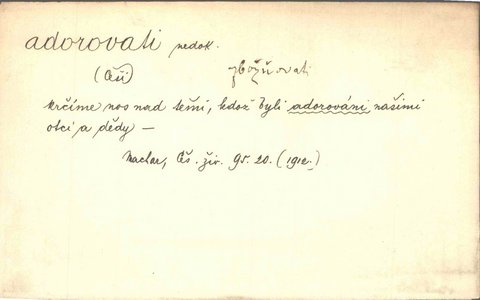 adorovati nedok.
(Čs) zbožňovati
krčíme nos nad těmi, kdož byli adorováni našimi
otci a dědy —
Machar, Čs. živ. 95. 20. (1912.)